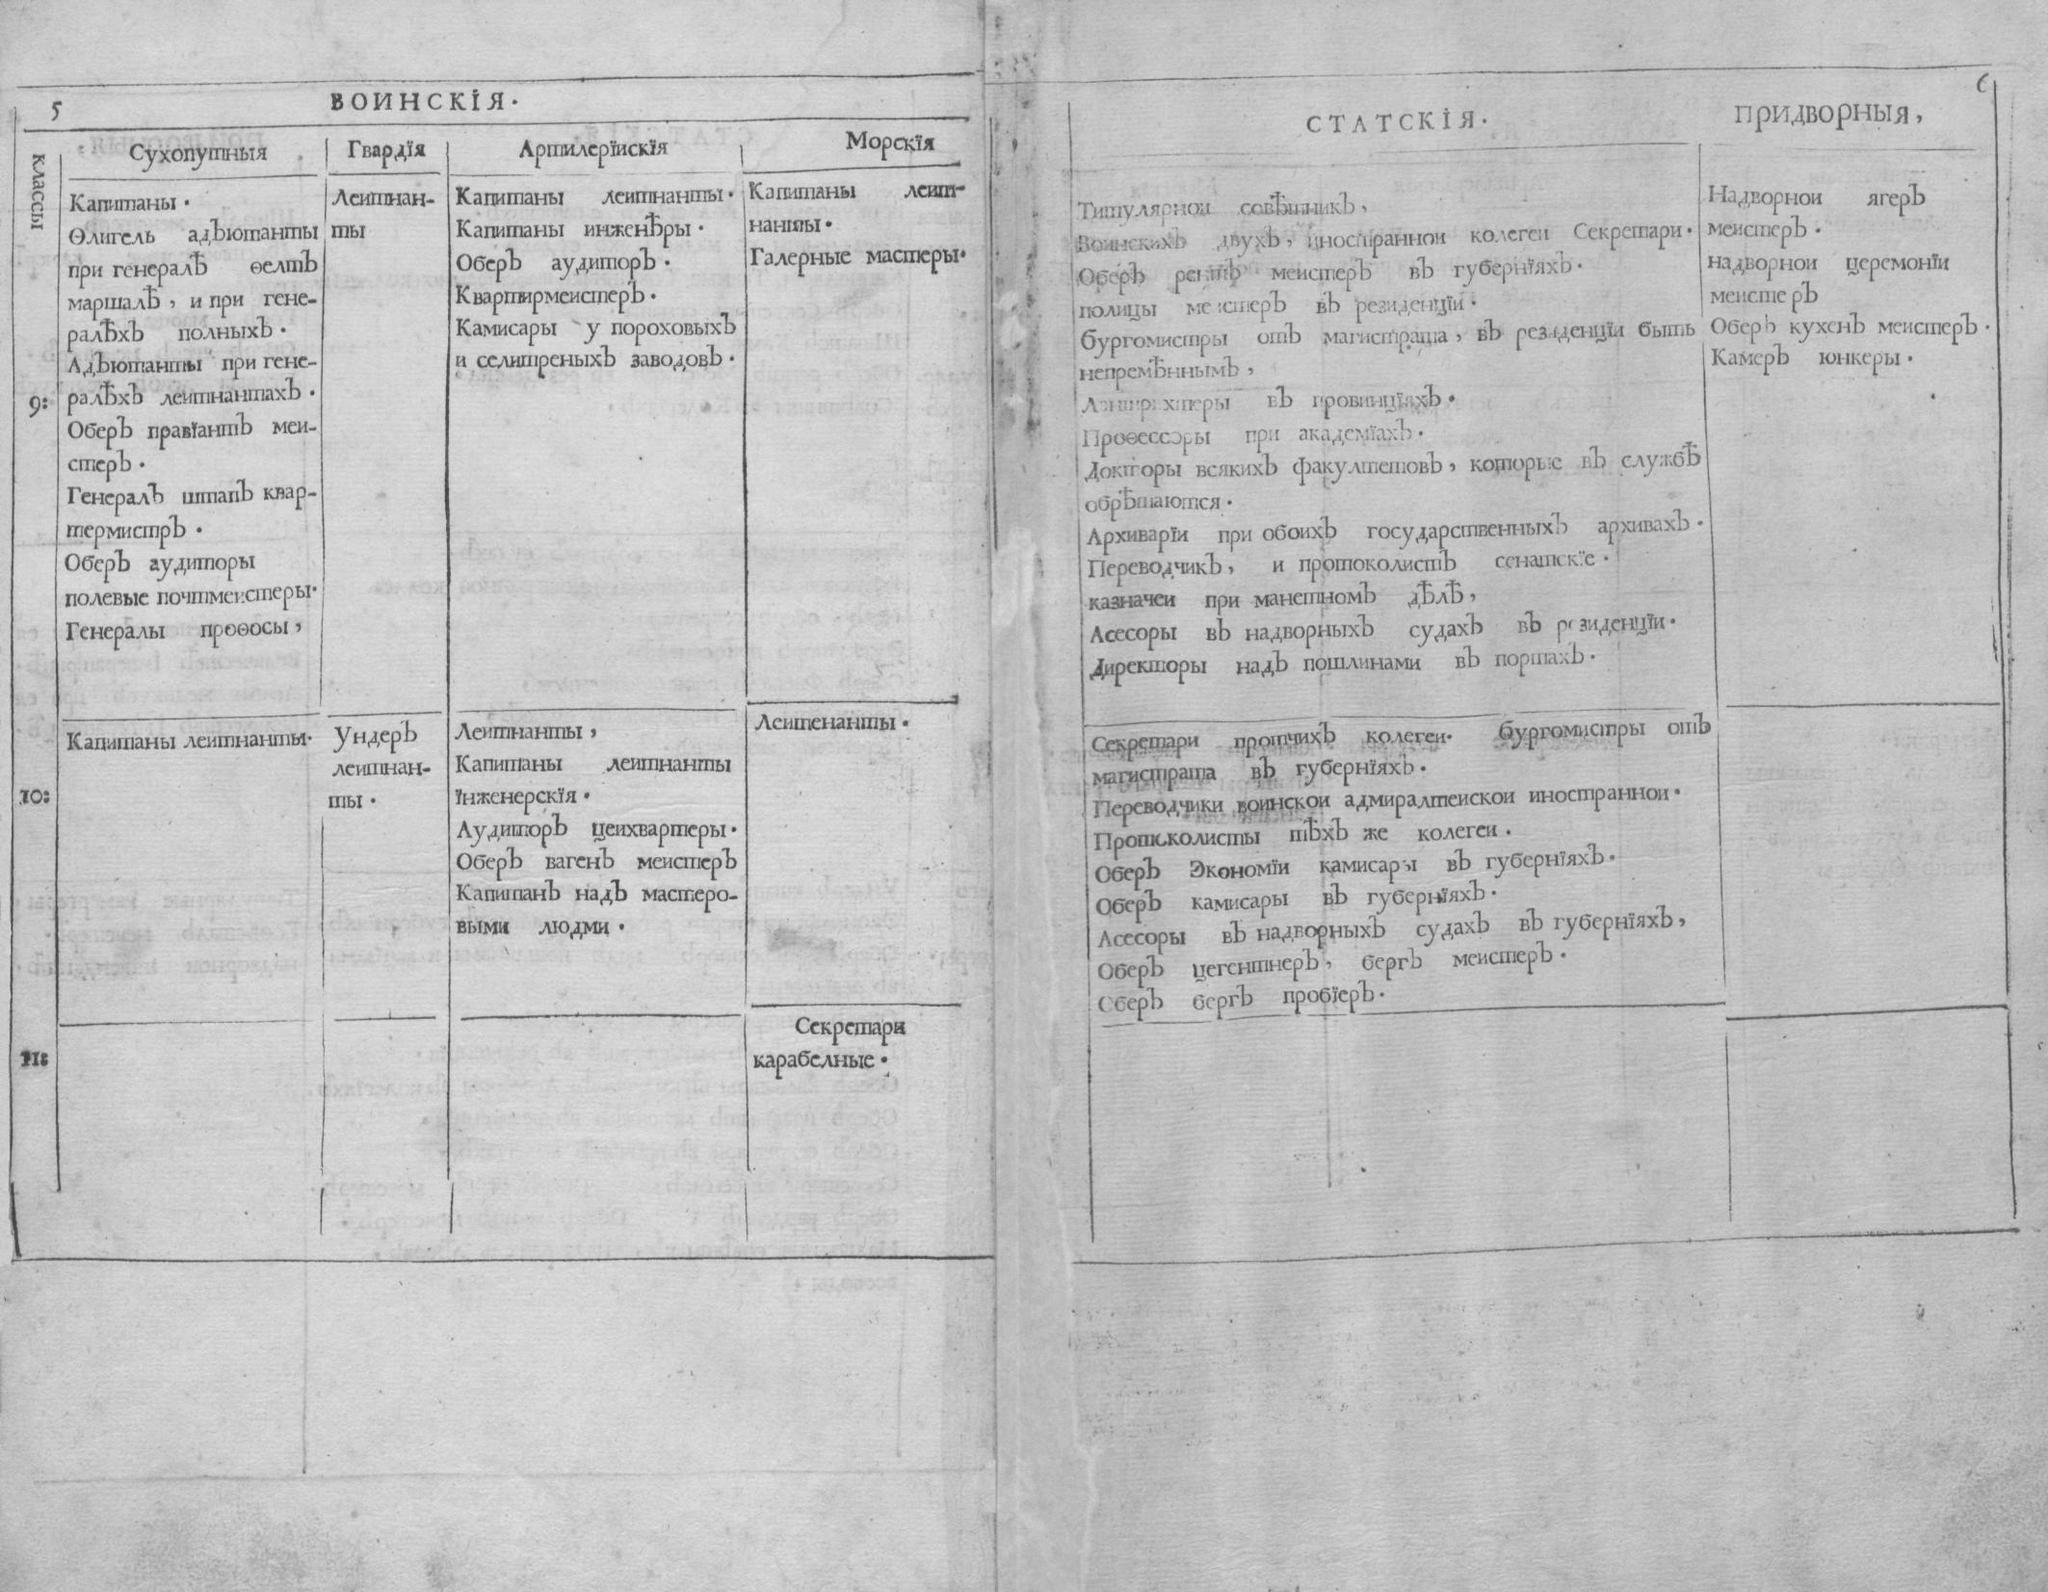 5
ВОИНСКІЯ.
КЛАССЫ
Сухопутныя
Капитаны.
Ѳлигель адъютанты
при генералѣ ѳелтъ
маршалѣ, и при гене-
ралѣхъ полныхъ.
Адъютанты при гене-
ралѣхъ леитнантахъ.
9:
Оберъ правїантъ меи-
стеръ.
Генералъ штапъ квар-
термистръ.
Оберъ аудиторы
полевые почтмеистеры.
Генералы проѳосы,
Гвардїя
Леитнан-
ты
Артилерїискїя
Капитаны леитнанты.
Капитаны инженѣры.
Оберъ аудиторъ.
Квартирмеистеръ.
Камисары у пороховыхъ
и селитреныхъ заводовъ.
Морскїя
Капитаны леит-
нанты.
Галерные мастеры.
10:
Капитаны леитнанты.
Ундеръ
леитнан-
ты.
Леитнанты,
Капитаны леитнанты
їнженерскїя.
Аудиторъ цеихвартеры.
Оберъ вагенъ меистеръ
Капитанъ надъ мастеро-
выми людми.
Леитенанты.
11:
Секретари
карабелные.
6
СТАТСКІЯ.
Титулярнои совѣтникъ,
Воинскихъ двухъ, иностраннои колегеи Секретари.
Оберъ рентъ меистеръ въ губернїяхъ.
полицы меистеръ въ резиденцїи.
бургомистры отъ магистрата, въ резиденцїи быть
непремѣннымъ,
Лантрихтеры въ провинцїяхъ.
Проѳессоры при академїахъ.
Докторы всякихъ факултетовъ, которые въ службѣ
обрѣтаются.
Архиварїи при обоихъ государственныхъ архивахъ.
Переводчикъ, и протоколистъ сенатскїе.
казначеи при манетномъ дѣлѣ,
Асесоры въ надворныхъ судахъ въ резиденцїи.
Директоры надъ пошлинами въ портахъ.
ПРИДВОРНЫЯ,
Надворнои ягеръ
меистеръ.
надворнои церемонїи
меистеръ
Оберъ кухенъ меистеръ.
Камеръ юнкеры.
Секретари протчихъ колегеи. бургомистры отъ
магистрата въ губернїяхъ.
Переводчики воинскои адмиралтеискои иностраннои.
Протоколисты тѣхъ же колегеи.
Оберъ Экономїи камисары въ губернїяхъ.
Оберъ камисары въ губернїяхъ.
Асесоры въ надворныхъ судахъ въ губернїяхъ,
Оберъ цегентнеръ, бергъ меистеръ.
Оберъ бергъ пробїеръ.